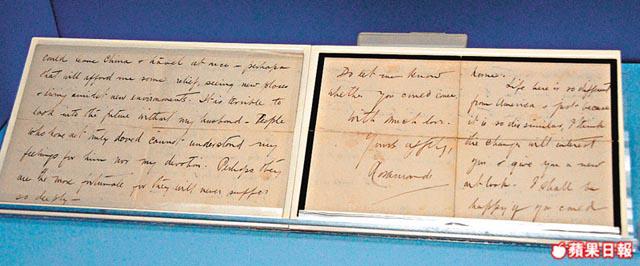 could come China & travel at once – perhaps
that will afford me some relief, seeing new places
& being amidst new environments. It is terrible to
look into the future without my husband – People
who have not truly loved cannot understand my
feelings for him nor my devotion. Perhaps they
are the more fortunate for they will never suffer
so deeply –
Do let me know
whether you could come,
With much love.
Yours affly,
Rosamonde
home.
Life here is so different
from America & just because
it is so dissimilar, I think
the change will interest
you & give you a new
outlook. I shall be
happy if you could
蘋果日報